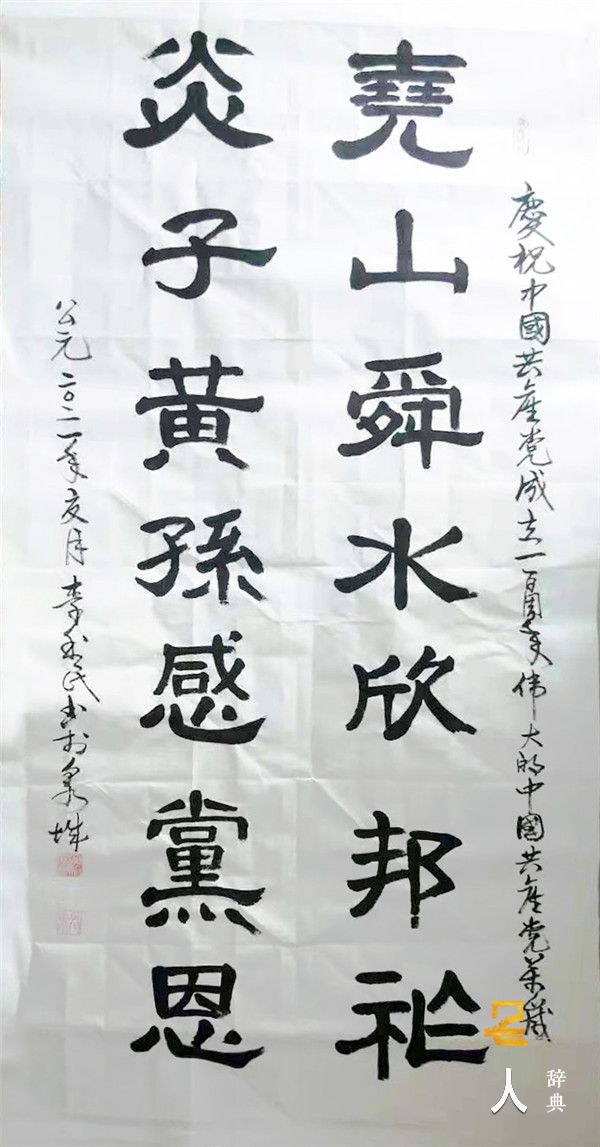 慶祝中國共産党成立一百周年伟大的中國共産党萬歲
堯山舜水欣邦祚
炎子黃孫感黨恩
公元二〇二一年夏月李民书於泉城
名人辞典